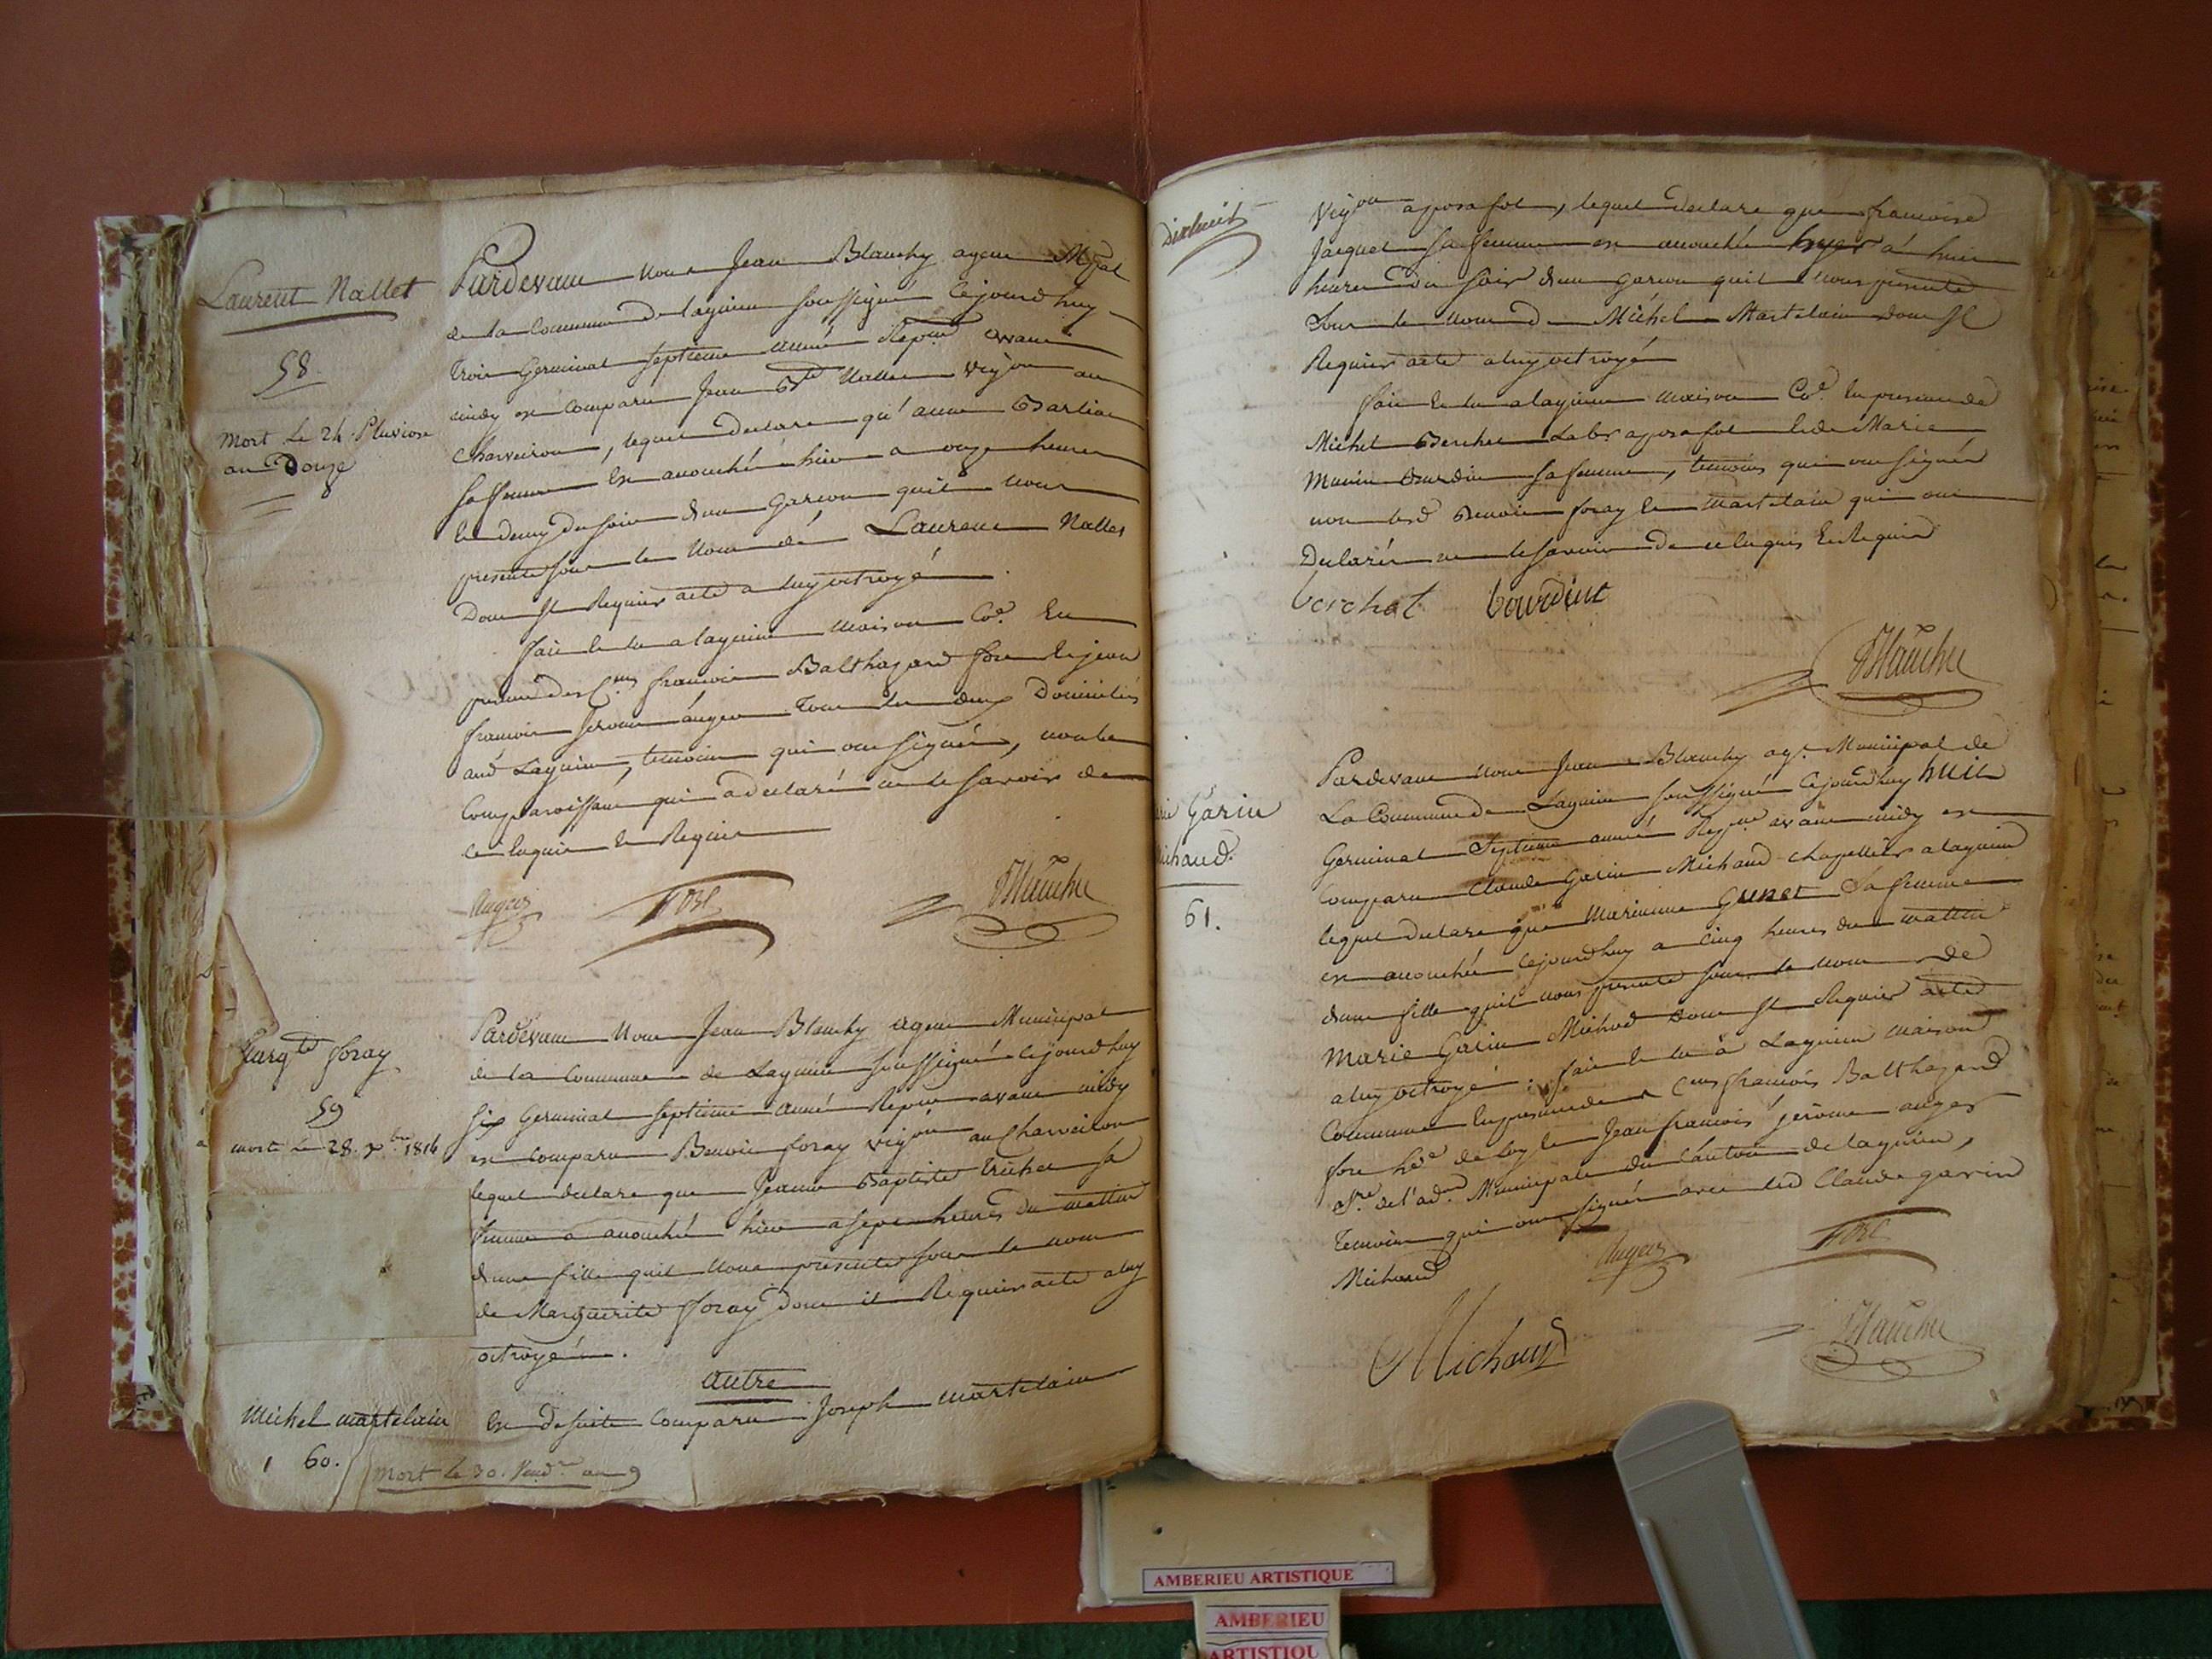 Laurent Nallet
58
Mort Le 24 Pluviose
an Douze
Pardevant Nous Jean Blanchy agent Mpal
de la Commune de lagnieu soussigné Cejourdhuy
trois Germinal septieme année Repne avant
midy est Comparu Jean Bte Nallet vigon au
Charveiron, lequel declare qu'anne Barlion
sa femme est accouché hier a onze heures
et demy du soir d'un garcon quil nous
presente sous le nom dé Laurent Nallet
Dont Il Requier acte a luy octroyé
fait et lu a lagnieu maison Co.e En
presence des C.ens francois Balthazard fore et jean
francois jerome auger tous les deux Domiciliés
aud Lagnieu, temoins qui ont signés, non le
Comparoissant qui a declaré ne le savoir de
ce Enquis et Requis
Auger fore Blanchy
Marg.te foray
59
morte le 28. Xbre 1816
Pardevant Nous Jean Blanchy agent Municipal
de la Commune de Lagnieu soussigné Cejourdhuy
six Germinal septieme année Repne avant midy
est comparu Benoit foray vigon au Charveiron
lequel declare que Jeanne Baptiste trichet sa
femme a accouché hier a sept heures du mattin
d'une fille quil nous presente sous le nom
de Marguerite foray dont il Requier acte a luy
octroyé.
autre
Michel martelain
60.
Est De suite Comparu Joseph martelain
Mort le 30. Vend.re an 9
Dixhuit
vigon a posafol, lequel declare que francoise
Jacquet sa femme est accouché hyer a huit
heures du soir d'un garcon quil nous presente
sous le nom De Michel Martelain dont Il
Requier acte a luy octroyé
fait et lu a lagnieu maison Co.e En presence de
Michel Berchet Lab.r a posafol et de Marie
bourdin sa femme, temoins qui ont signés
non led Benoit foray et martelain qui ont
Declarés ne le savoir De ce Enquis Et Requis
berchet bourdint
Blanchy
Garin
Michaud.
61.
Pardevant nous Jean Blanchy ag.t Municipal de
La Commune de Lagnieu soussigné Cejourdhuy huit
Germinal septieme année Repne avant midy est
Comparu Claude Garin Michaud chapellier a lagnieu
lequel declare que Marianne Grenet sa femme
est accouché Cejourdhuy a cinq heures du mattin
d'une fille quil nous presente sous le nom de
Marie Garin Michod dont Il Requier acte
a luy octroyé. fait et lu a Lagnieu maison
Commune En presence des C.ens francois Balthazard
fore et Jean francois jerome auger
de l'ad.on Municipale du Canton de lagnieu,
temoins qui ont signés avec led Claude garin
Michaud
Auger fore
Michaud Blanchy
AMBERIEU ARTISTIQUE
AMBERIEU
ARTISTIQU